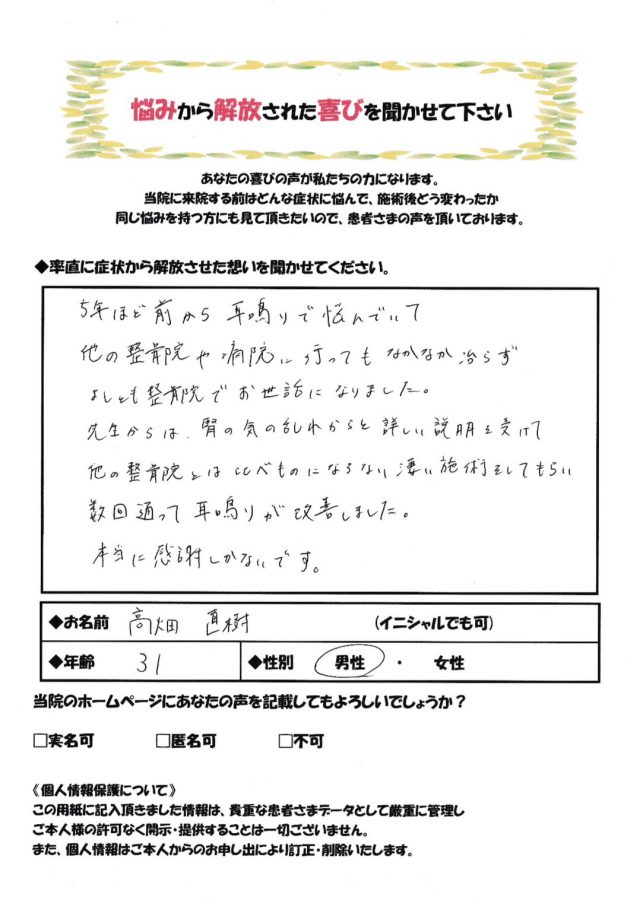 悩みから解放された喜びを聞かせて下さい
あなたの喜びの声が私たちの力になります。
当院に来院する前はどんな症状に悩んで、施術後どう変わったか
同じ悩みを持つ方にも見て頂きたいので、患者さまの声を頂いております。
◆率直に症状から解放させた想いを聞かせてください。
5年ほど前から耳鳴りで悩んでいて
他の整骨院や病院に行ってもなかなか治らず
よしとも整骨院でお世話になりました。
先生からは、腎の気の乱れからと詳しい説明を受けて
他の整骨院とは比べものにならない凄い施術をしてもらい
数回通って耳鳴りが改善しました。
本当に感謝しかないです。
◆お名前 高畑 直樹 (イニシャルでも可)
◆年齢 31 ◆性別 男性 ・ 女性
当院のホームページにあなたの声を記載してもよろしいでしょうか？
□実名可 □匿名可 □不可
《個人情報保護について》
この用紙に記入頂きました情報は、貴重な患者さまデータとして厳重に管理し
ご本人様の許可なく開示・提供することは一切ございません。
また、個人情報はご本人からのお申し出により訂正・削除いたします。